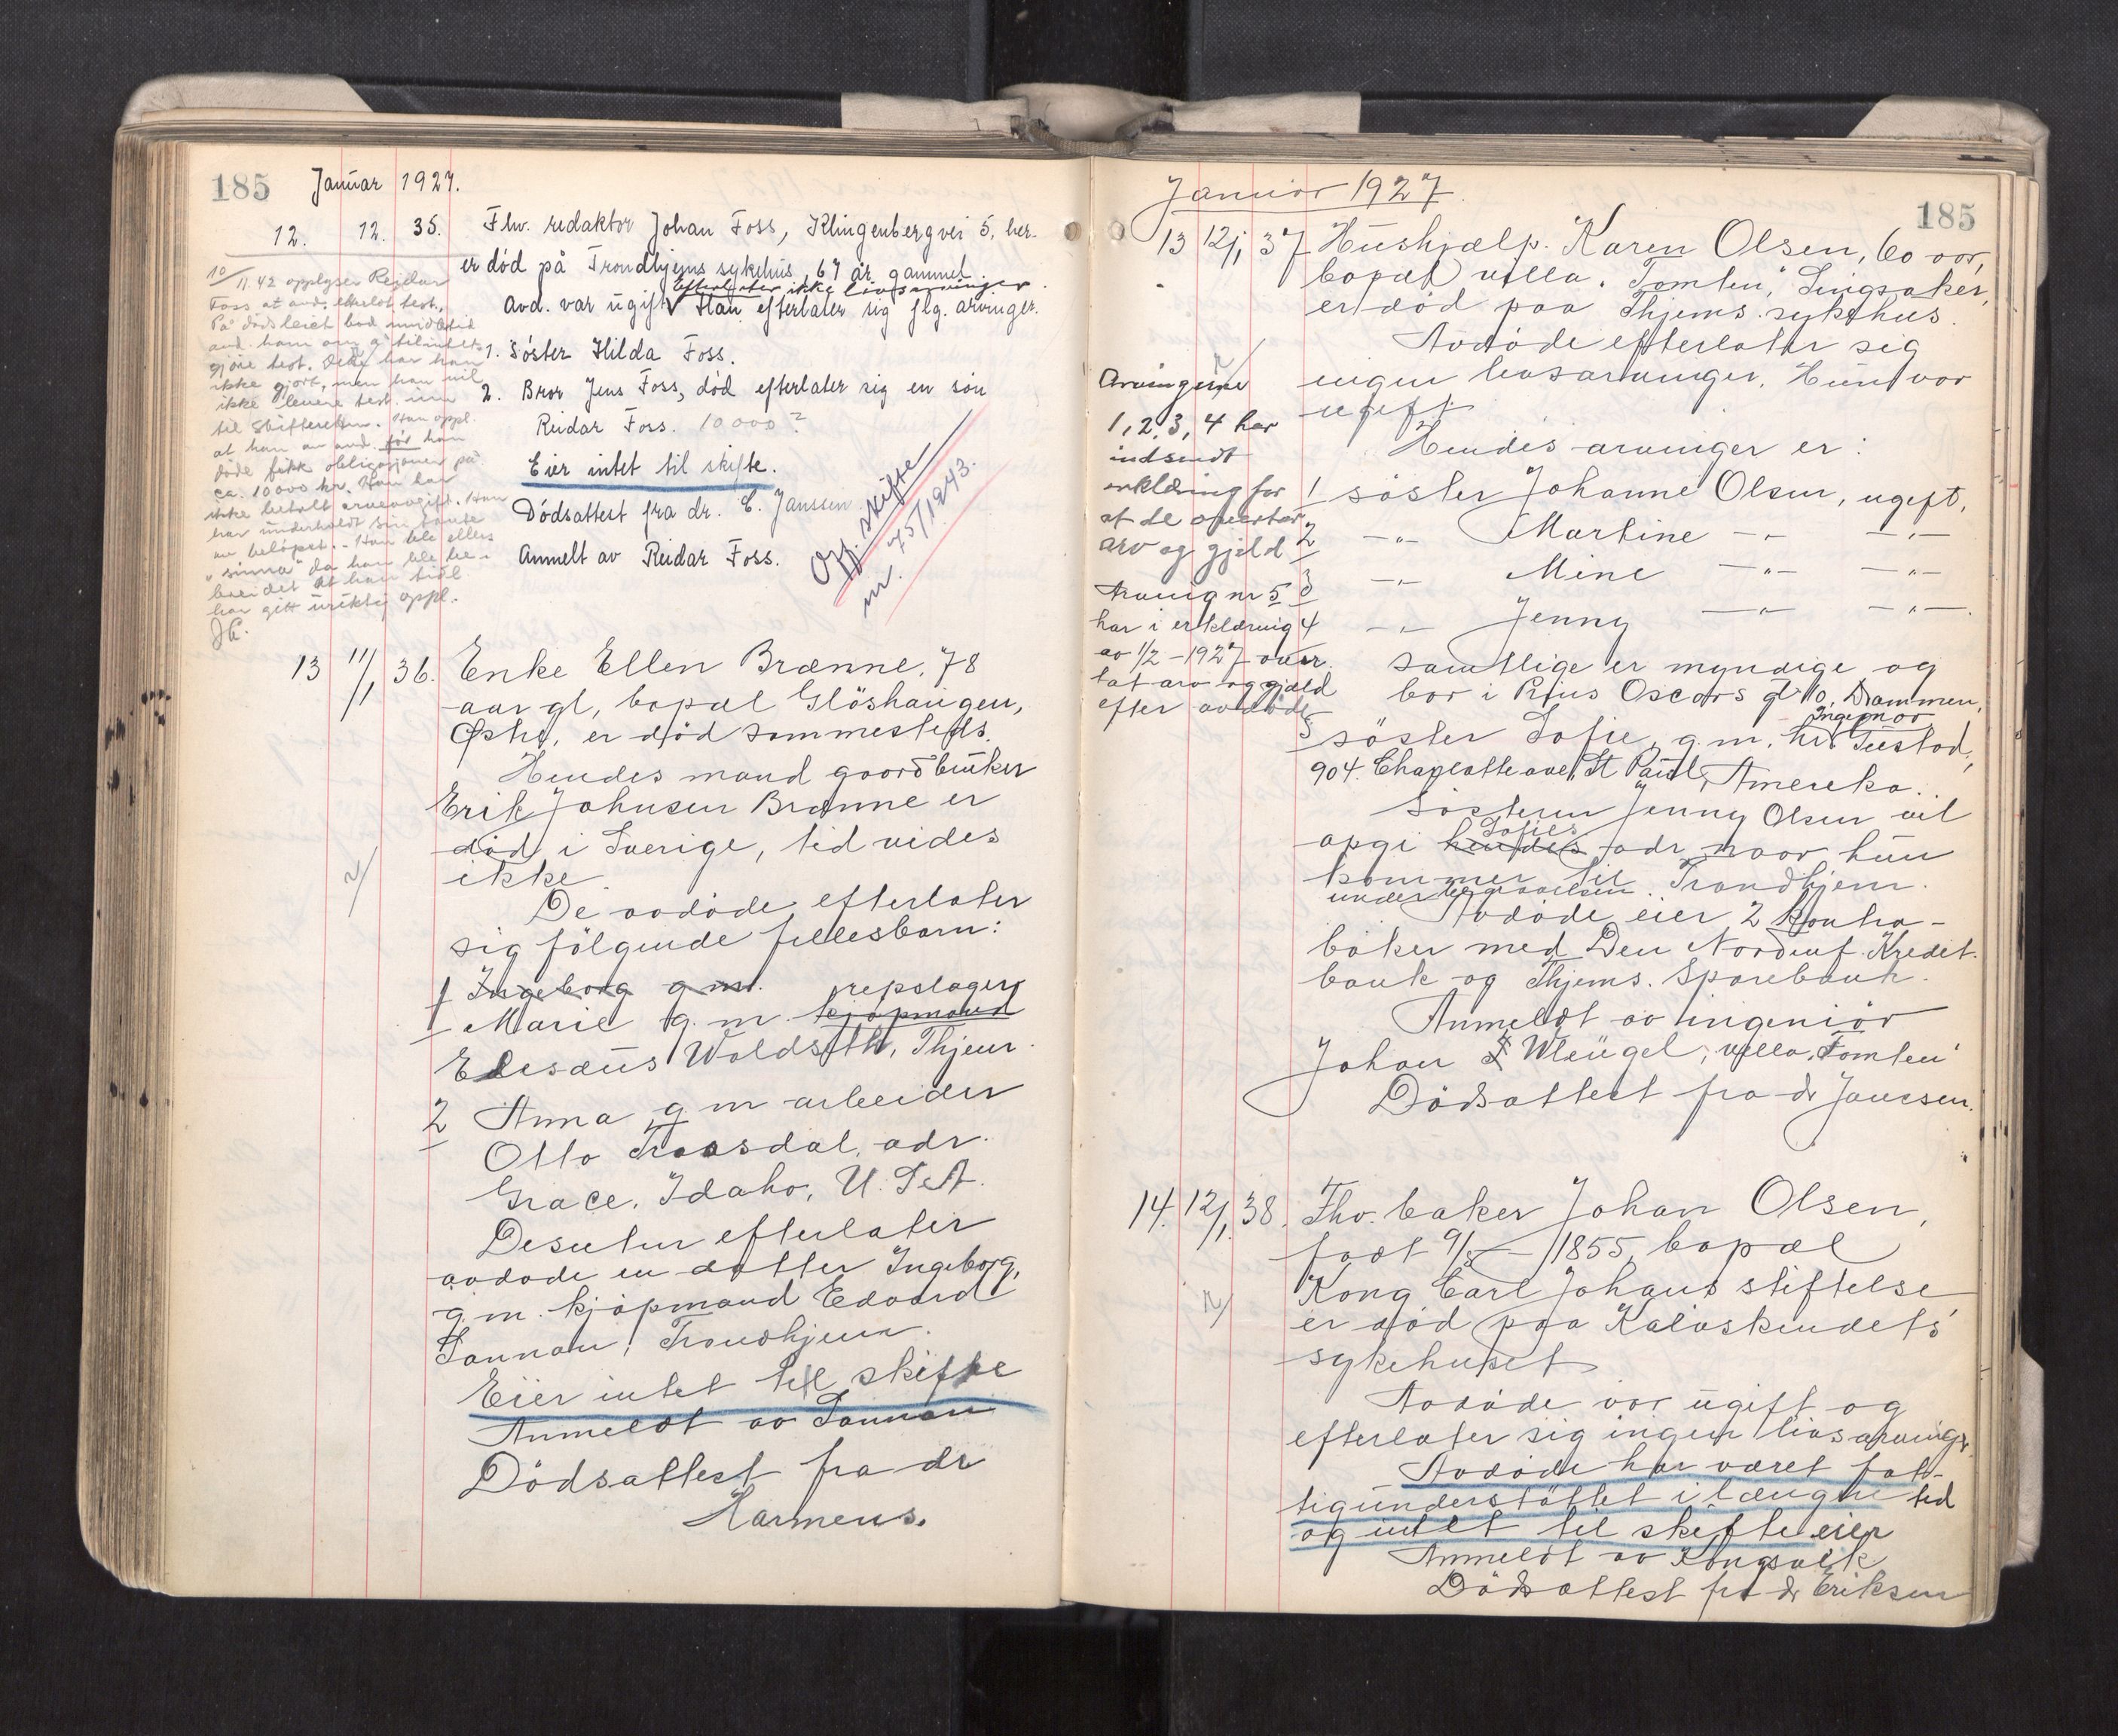 185 Januar 1927.
12. 12. 35. Fhv. redaktør Johan Foss, Klingenbergvei 5, her.
er død på Trondhjems sykehus, 67 år gammel.
Efterlater ikke livsarvinger.
Avd. var ugift. Han efterlater sig flg. arvinger.
1. Søster Hilda Foss.
2. Bror Jens Foss, død efterlater sig en søn
Reidar Foss. 10000?
Eier intet til skifte.
Dødsattest fra dr. C. Janssen
Anmelt av Reidar Foss.
Off. skifte
nr. 75/1943.
10/11.42 opplyser Reidar
Foss at avd. efterlot test.,
På dødsleiet bad imidlertid
avd. ham om å tilintet-
gjøre test. Dette har han
ikke gjort, men han vil
ikke levere test. inn
til skifteretten. Han oppl.
at han av avd. før han
døde fikk obligasjoner på
ca. 10000 kr. Han har
ikke betalt arveavgift. Han
har underholdt sin tante
av beløpet. - Han ble ellers
"sinna" da han ble be-
breidet at han tidl.
har gitt uriktig oppl.
13 11/1 36. Enke Ellen Brænne, 78
aar gl, bopæl Gløshaugen,
er død sammesteds.
Hendes mand gaardbruker
Erik Johnsen Brænne er
død i Sverige, tid vides
ikke.
De avdøde efterlater
sig følgende fellesbarn:
1 Ingeborg g.m. repslager
1 Marie g.m. kjøpmand
Elesæus Woldseth, Thjem.
2 Anna g m arbeider
Otto Traasdal, adr.
Grace, Idaho, U.S.A.
Desuten efterlater
avdøde en datter Ingeborg,
g.m. kjøpmand Edvard
Sannan, Trondhjem.
Eier intet til skifte
Anmeldt av Sannan
Dødsattest fra dr
Harmens.
Januar 1927.
185
13 12/1 37 Hushjælp Karen Olsen, 60 aar,
bopæl villa "Tomten", Singsaker,
er død paa Thjems sykehus.
Avdøde efterlater sig
ingen livsarvinger. Hun var
ugift
Hendes arvinger er:
1 søster Johanne Olsen, ugift,
2 -"- Martine -"- -"-
3 -"- Mine -"- -"-
4 -"- Jenny -"- -"-.
samtlige er myndige og
bor i Prins Oscars gt 10, Drammen,
5 søster Sofie, g.m. Ingeniør Tustad,
904. Charlotte ave, St Paul, Amerika.
Søsteren Jenny Olsen vil
opgi hendes Sofies adr naar hun
kommer til Trondhjem.
under begravelsen.
Avdøde eier 2 kontra-
bøker med Den Nordenf. Kredit-
bank og Thjems. Sparebank.
Anmeldt av ingeniør
Johan Wleügel, villa "Tomten"
Dødsattest fra dr Janssen.
Arvingerne
1, 2, 3, 4 har
indsendt
erklæring for
at de overtar
arv og gjeld
Arving nr 5
har i erklæring
av 1/2-1927 over-
tat arv og gjæld
efter avdøde
14. 12/1. 38. Fhv. baker Johan Olsen,
født 9/5-1855, bopæl
Kong Carl Johans stiftelse
er død paa Kalvskindets
sykehuset
Avdøde var ugift og
efterlater sig ingen livsarvinger.
Avdøde har været fat-
tigunderstøttet i længre tid
og intet til skifte eier
Anmeldt av Kongsvik
Dødsattest fra dr Eriksen